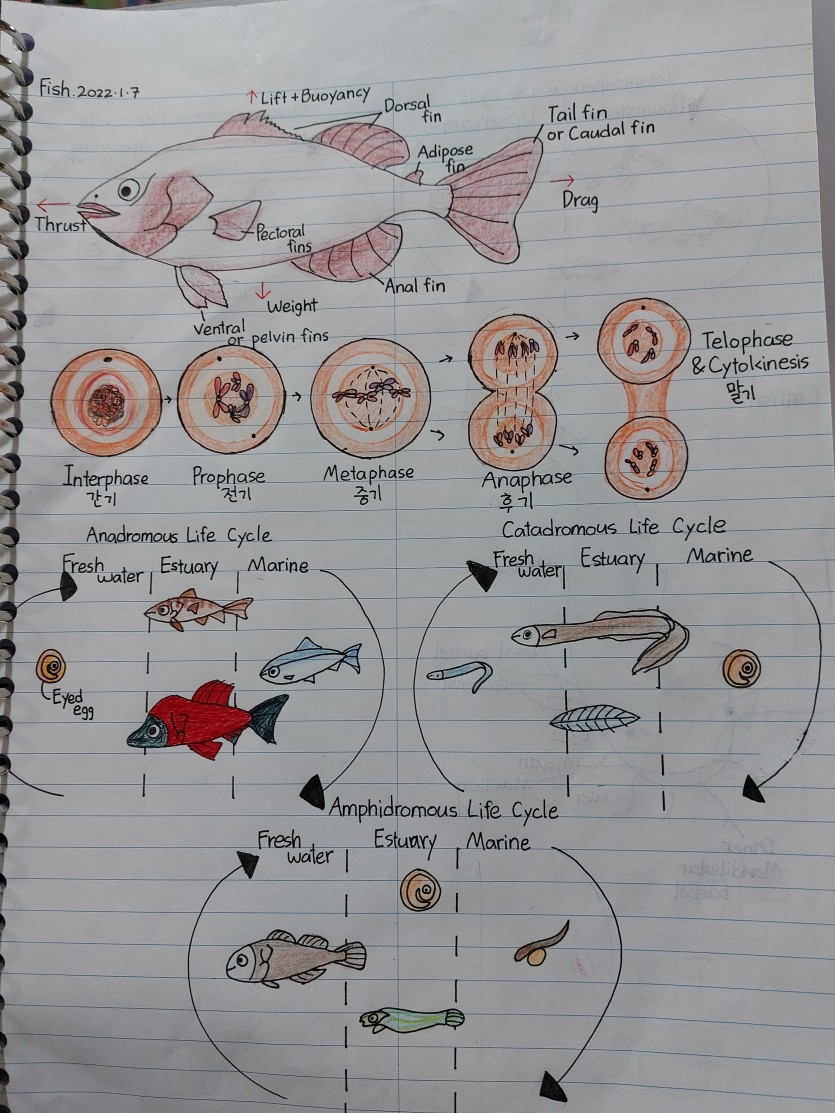 Fish. 2022.1.7
↑ Lift + Buoyancy
Dorsal
fin
Tail fin
or Caudal fin
Adipose
fin
Drag
Thrust
Pectoral
fins
Anal fin
Weight
Ventral
or pelvin fins
Telophase
& Cytokinesis
말기
Interphase
간기
Prophase
전기
Metaphase
중기
Anaphase
후기
Anadromous Life Cycle
Fresh
water
Estuary
Marine
Eyed
egg
Catadromous Life Cycle
Fresh
water
Estuary
Marine
Amphidromous Life Cycle
Fresh
water
Estuary
Marine